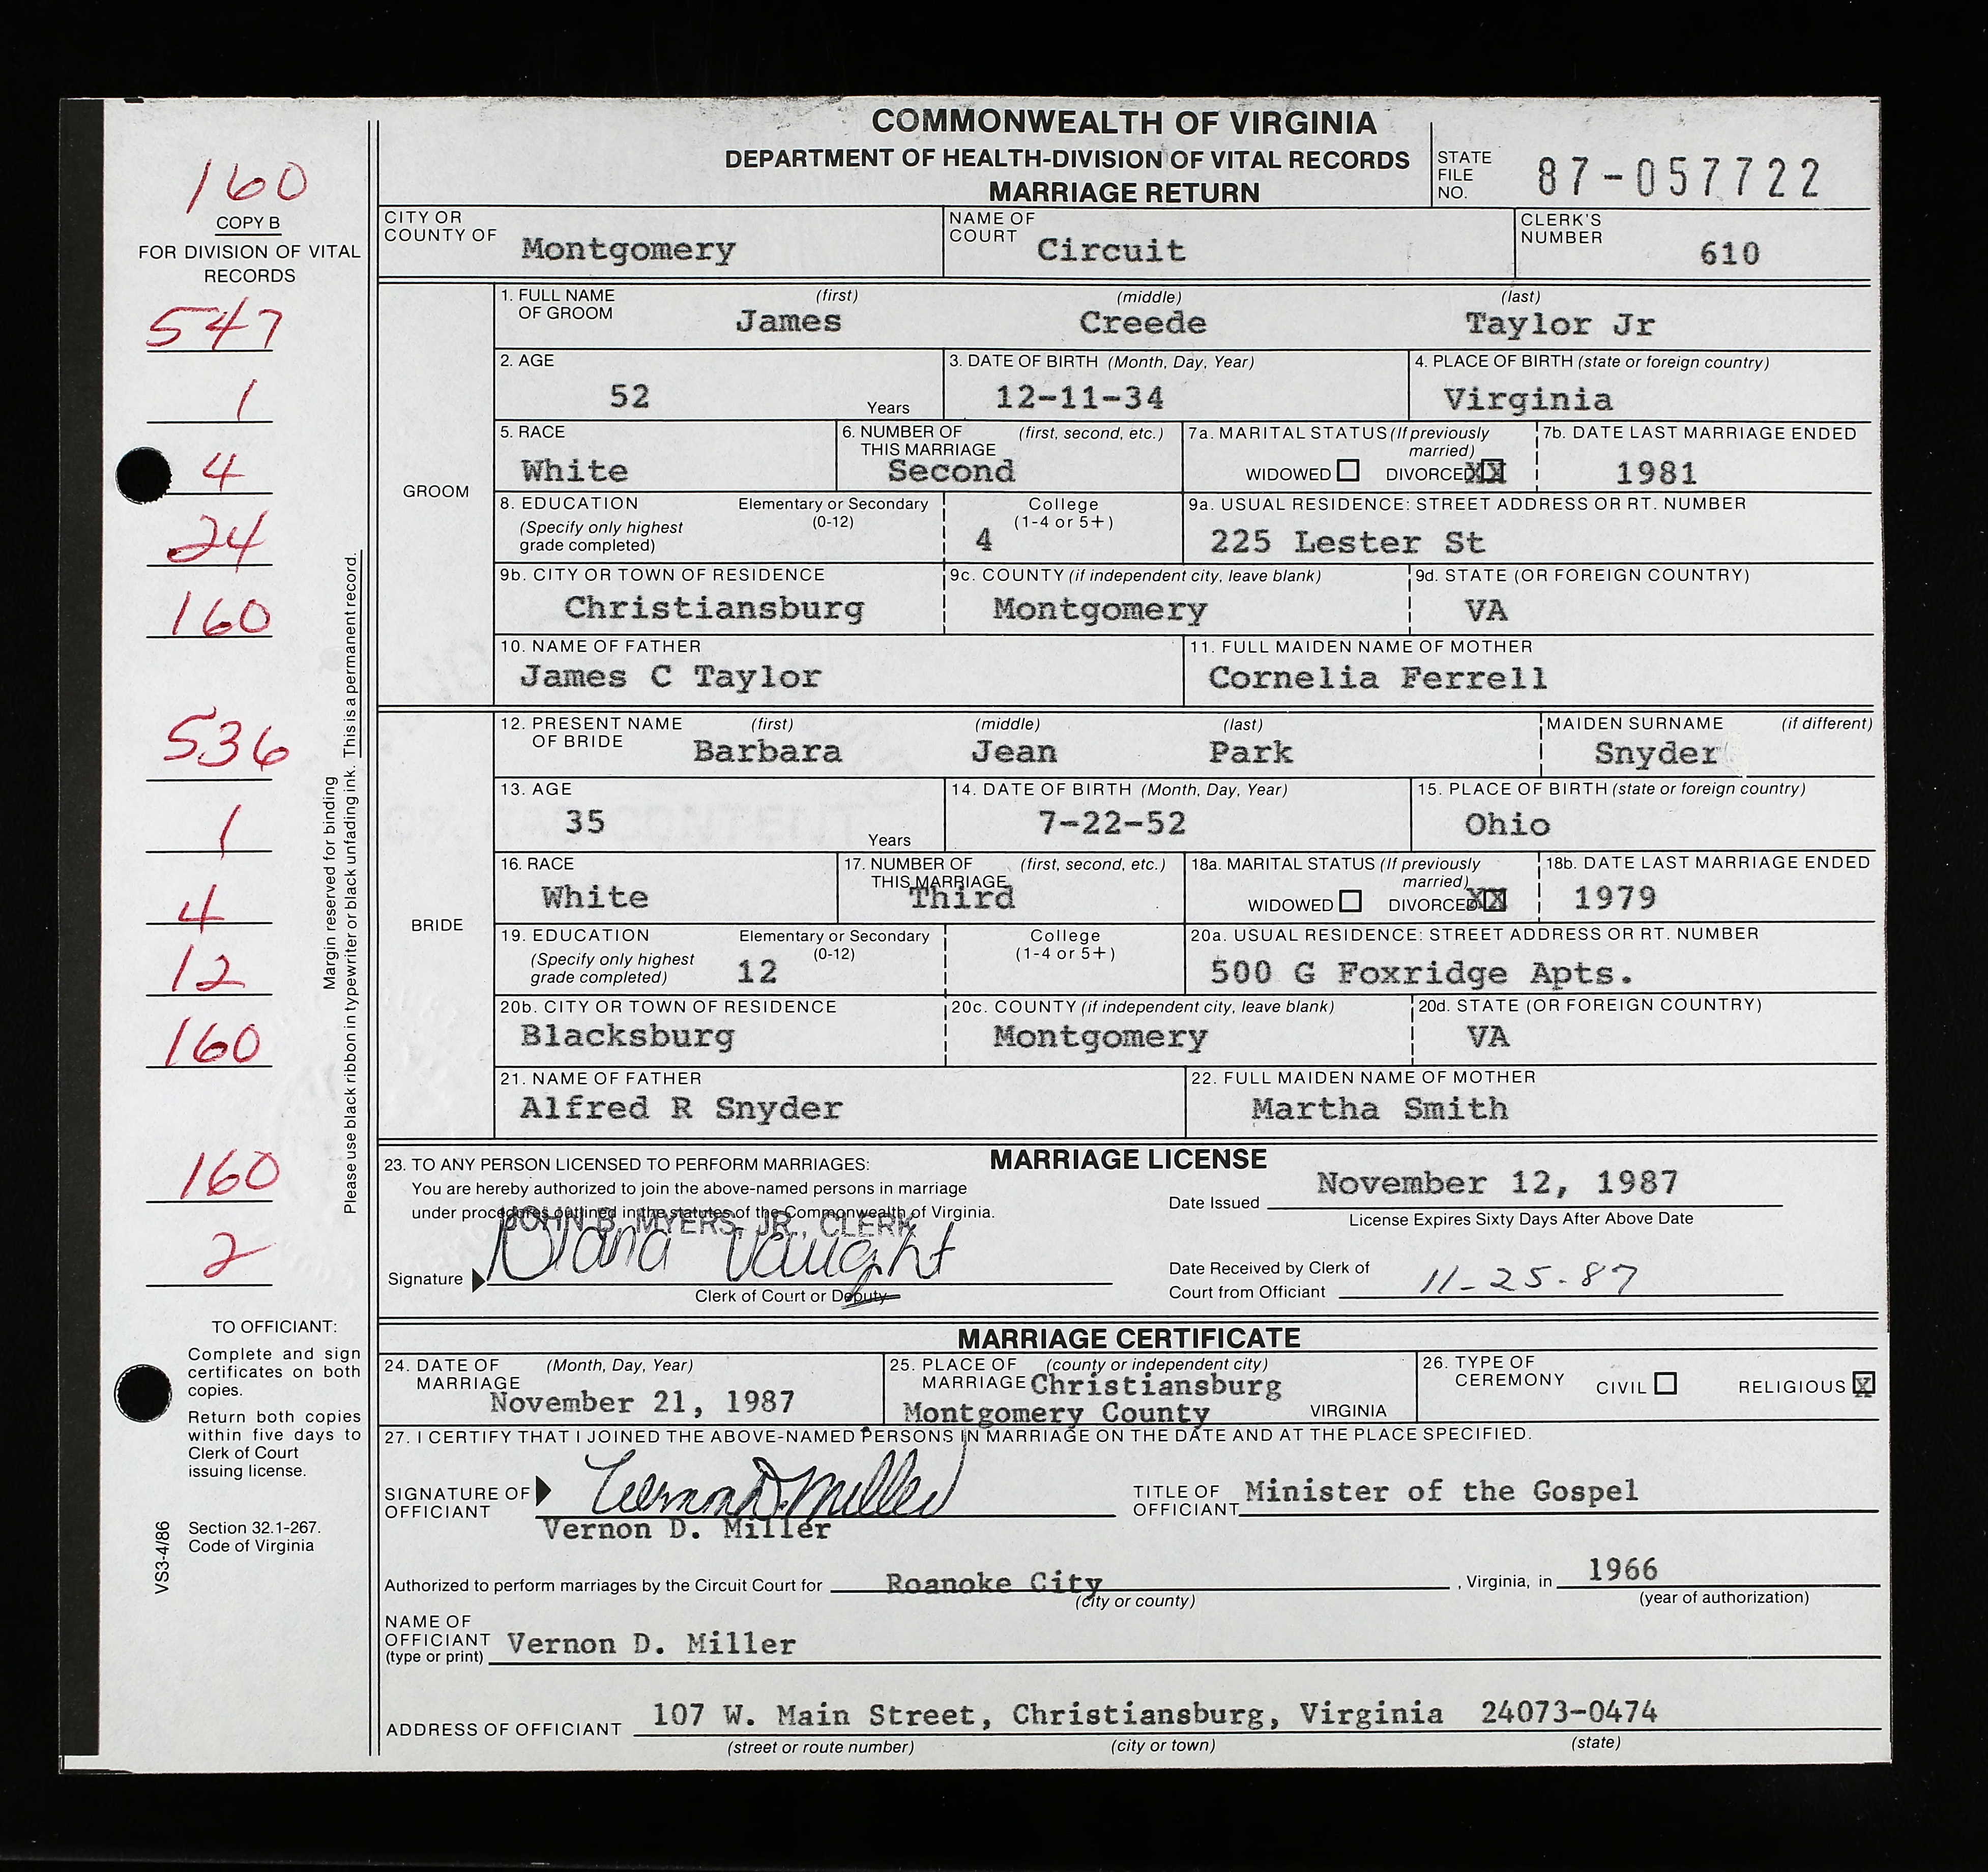 COMMONWEALTH OF VIRGINIA
DEPARTMENT OF HEALTH-DIVISION OF VITAL RECORDS
MARRIAGE RETURN
STATE FILE NO. 87-057722
160
COPY B
FOR DIVISION OF VITAL RECORDS
547
1
4
24
160
536
1
4
12
160
160
2
Margin reserved for binding
Please use black ribbon in typewriter or black unfading ink. This is a permanent record.
TO OFFICIANT:
Complete and sign
certificates on both
copies.
Return both copies
within five days to
Clerk of Court
issuing license.
Section 32.1-267.
Code of Virginia
VS3-4/86
CITY OR COUNTY OF Montgomery
NAME OF COURT Circuit
CLERK'S NUMBER 610
GROOM
1. FULL NAME OF GROOM (first) James (middle) Creede (last) Taylor Jr
2. AGE 52 Years
3. DATE OF BIRTH (Month, Day, Year) 12-11-34
4. PLACE OF BIRTH (state or foreign country) Virginia
5. RACE White
6. NUMBER OF THIS MARRIAGE (first, second, etc.) Second
7a. MARITAL STATUS (If previously married) WIDOWED DIVORCED XX
7b. DATE LAST MARRIAGE ENDED 1981
8. EDUCATION (Specify only highest grade completed) Elementary or Secondary (0-12) College (1-4 or 5+) 4
9a. USUAL RESIDENCE: STREET ADDRESS OR RT. NUMBER 225 Lester St
9b. CITY OR TOWN OF RESIDENCE Christiansburg
9c. COUNTY (if independent city, leave blank) Montgomery
9d. STATE (OR FOREIGN COUNTRY) VA
10. NAME OF FATHER James C Taylor
11. FULL MAIDEN NAME OF MOTHER Cornelia Ferrell
BRIDE
12. PRESENT NAME OF BRIDE (first) Barbara (middle) Jean (last) Park MAIDEN SURNAME (if different) Snyder
13. AGE 35 Years
14. DATE OF BIRTH (Month, Day, Year) 7-22-52
15. PLACE OF BIRTH (state or foreign country) Ohio
16. RACE White
17. NUMBER OF THIS MARRIAGE (first, second, etc.) Third
18a. MARITAL STATUS (If previously married) WIDOWED DIVORCED XX
18b. DATE LAST MARRIAGE ENDED 1979
19. EDUCATION (Specify only highest grade completed) Elementary or Secondary (0-12) 12 College (1-4 or 5+)
20a. USUAL RESIDENCE: STREET ADDRESS OR RT. NUMBER 500 G Foxridge Apts.
20b. CITY OR TOWN OF RESIDENCE Blacksburg
20c. COUNTY (if independent city, leave blank) Montgomery
20d. STATE (OR FOREIGN COUNTRY) VA
21. NAME OF FATHER Alfred R Snyder
22. FULL MAIDEN NAME OF MOTHER Martha Smith
MARRIAGE LICENSE
23. TO ANY PERSON LICENSED TO PERFORM MARRIAGES:
You are hereby authorized to join the above-named persons in marriage
under procedures outlined in the statutes of the Commonwealth of Virginia.
JOHN B. MYERS, JR., CLERK
Signature Diana Vaught
Clerk of Court or Deputy
Date Issued November 12, 1987
License Expires Sixty Days After Above Date
Date Received by Clerk of Court from Officiant 11-25-87
MARRIAGE CERTIFICATE
24. DATE OF MARRIAGE (Month, Day, Year) November 21, 1987
25. PLACE OF MARRIAGE (county or independent city) Christiansburg
Montgomery County VIRGINIA
26. TYPE OF CEREMONY CIVIL RELIGIOUS X
27. I CERTIFY THAT I JOINED THE ABOVE-NAMED PERSONS IN MARRIAGE ON THE DATE AND AT THE PLACE SPECIFIED.
SIGNATURE OF OFFICIANT Vernon D. Miller
Vernon D. Miller
TITLE OF OFFICIANT Minister of the Gospel
Authorized to perform marriages by the Circuit Court for Roanoke City, Virginia, in 1966
(city or county) (year of authorization)
NAME OF OFFICIANT (type or print) Vernon D. Miller
ADDRESS OF OFFICIANT 107 W. Main Street, Christiansburg, Virginia 24073-0474
(street or route number) (city or town) (state)